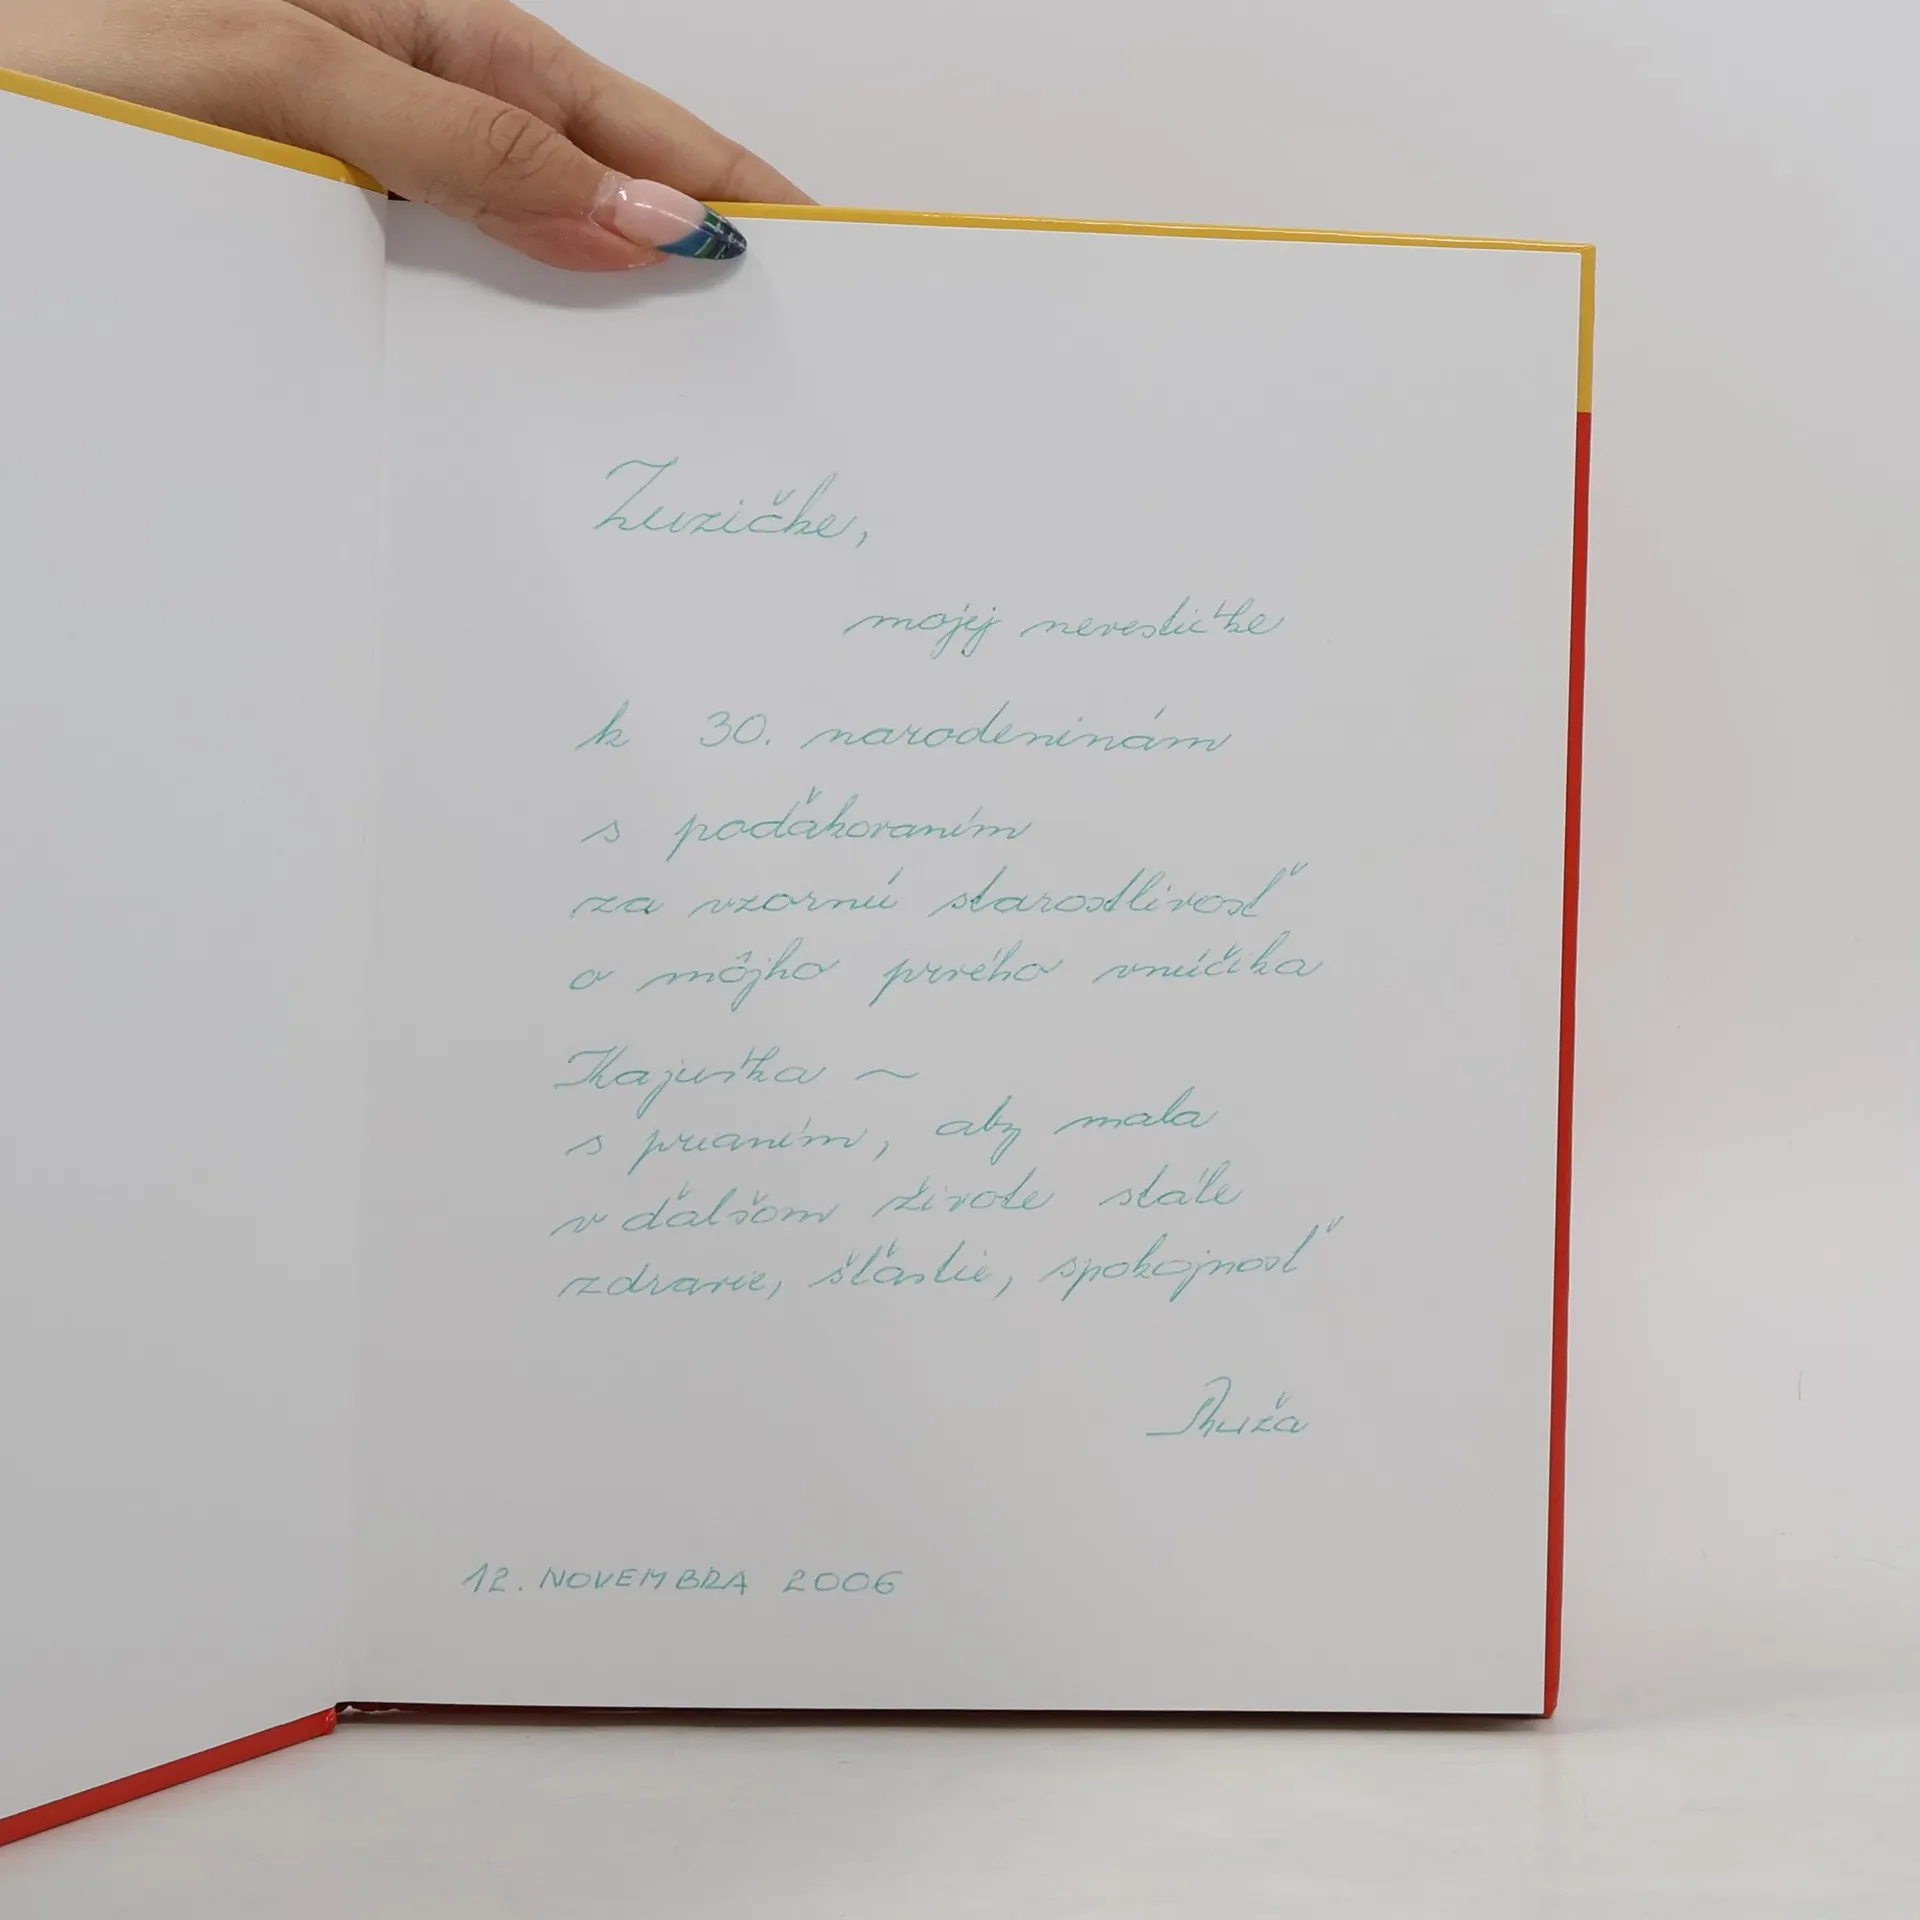 Zuzičke,
mojej nevestičke
k 30. narodeninám
s poďakovaním
za vzornú starostlivosť
o môjho prvého vnúčika
Kajuška ~
s prianím, aby mala
v ďalšom živote stále
zdravie, šťastie, spokojnosť
Ruža
12. NOVEMBRA 2006